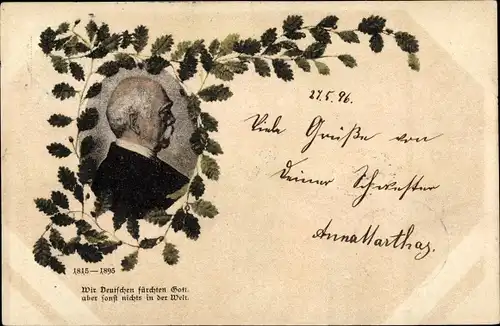 27.5.96.
Viele Grüße von
Deiner Schwester
Anna Martha.
1815—1895
Wir Deutschen fürchten Gott
aber sonst nichts in der Welt.